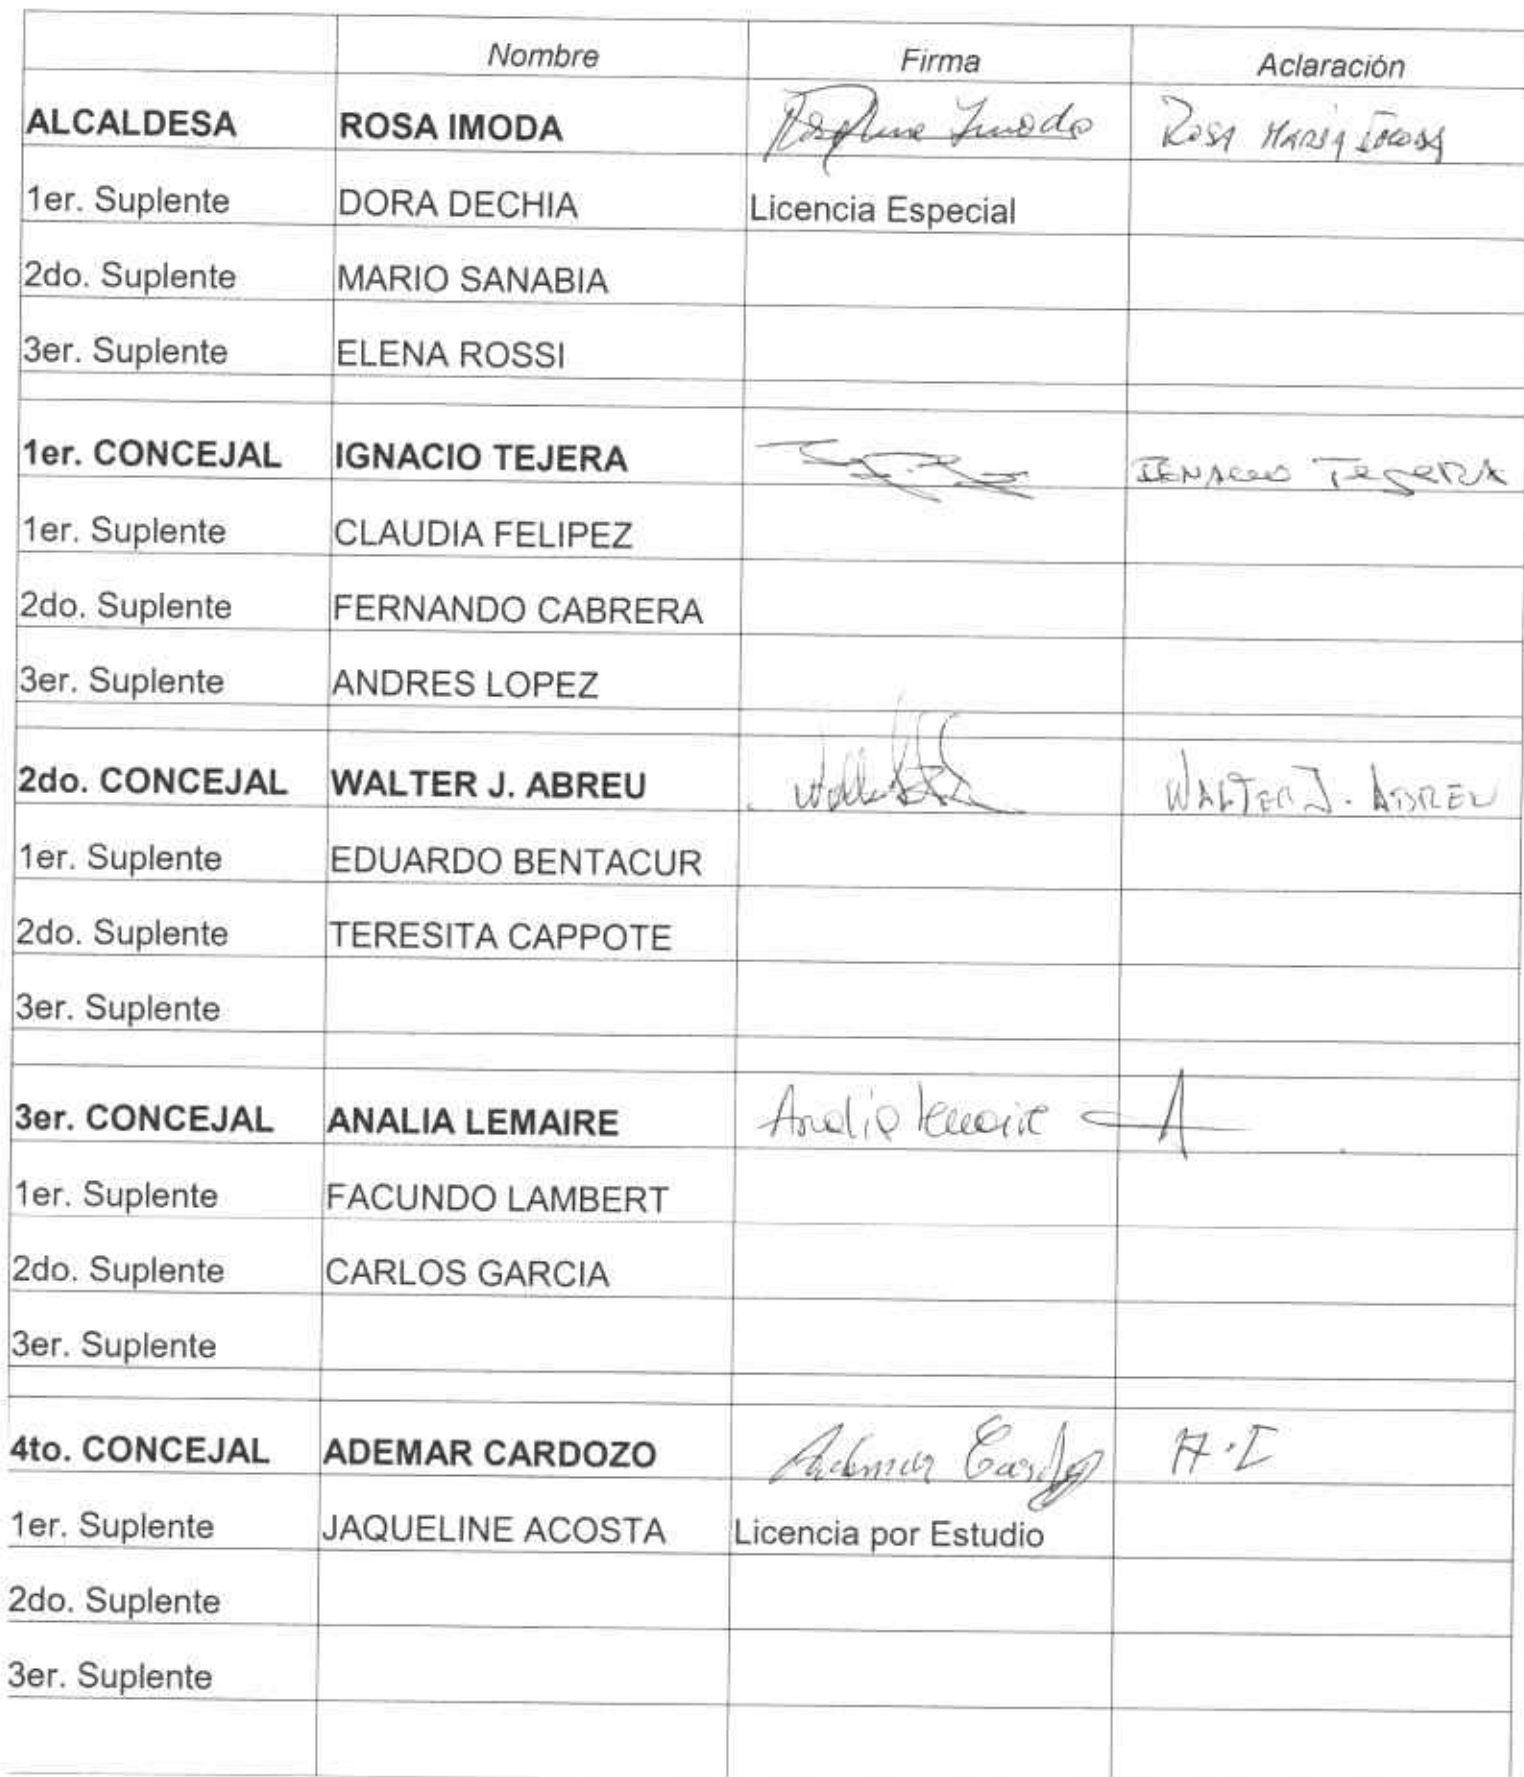 Nombre Firma Aclaración
ALCALDESA ROSA IMODA Rosa María Imoda
1er. Suplente DORA DECHIA Licencia Especial
2do. Suplente MARIO SANABIA
3er. Suplente ELENA ROSSI
1er. CONCEJAL IGNACIO TEJERA IGNACIO TEJERA
1er. Suplente CLAUDIA FELIPEZ
2do. Suplente FERNANDO CABRERA
3er. Suplente ANDRES LOPEZ
2do. CONCEJAL WALTER J. ABREU WALTER J. ABREU
1er. Suplente EDUARDO BENTACUR
2do. Suplente TERESITA CAPPOTE
3er. Suplente
3er. CONCEJAL ANALIA LEMAIRE Analia Lemaire
1er. Suplente FACUNDO LAMBERT
2do. Suplente CARLOS GARCIA
3er. Suplente
4to. CONCEJAL ADEMAR CARDOZO Ademar Cardozo
1er. Suplente JAQUELINE ACOSTA Licencia por Estudio
2do. Suplente
3er. Suplente